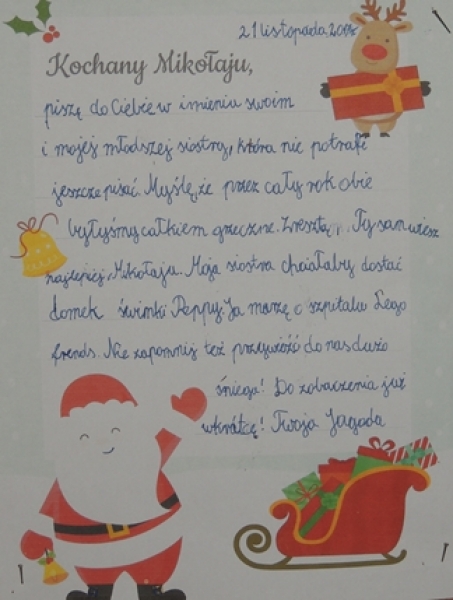 21 listopada 2018
Kochany Mikołaju,
piszę do Ciebie w imieniu swoim
i mojej młodszej siostry, która nie potrafi
jeszcze pisać. Myślę, że przez cały rok obie
byłyśmy całkiem grzeczne. Zresztą, Ty sam wiesz
najlepiej, Mikołaju. Moja siostra chciałaby dostać
domek świnki Peppy. Ja marzę o szpitalu Lego
frends. Nie zapomnij też przywieźć do nas dużo
śniegu! Do zobaczenia już
wkrótce! Twoja Jagoda